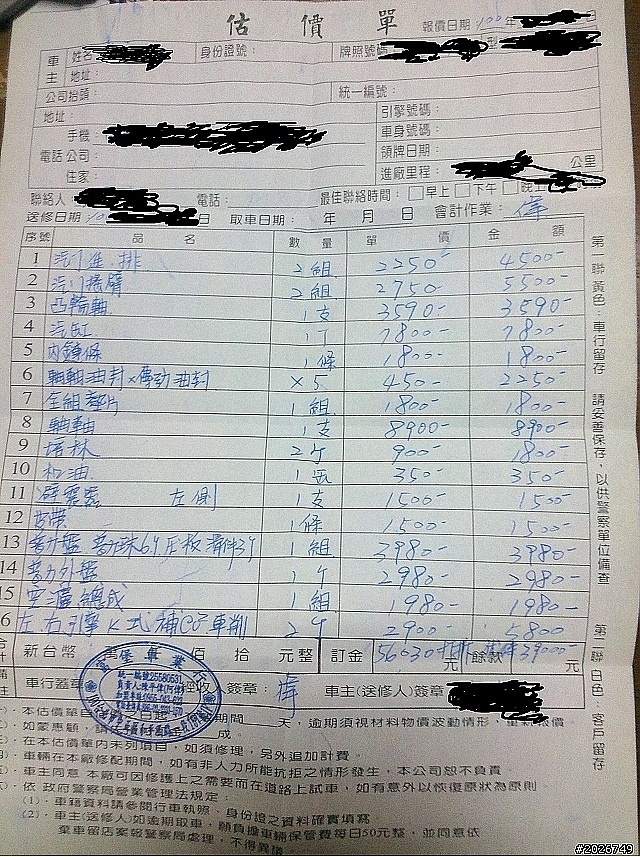 估價單
報價日期：100年
車主 姓名： 身份證號： 牌照號碼 型
地址：
公司抬頭： 統一編號：
地址： 引擎號碼：
手機： 車身號碼：
電話 公司： 領牌日期：
住家： 進廠里程： 公里
聯絡人 電話： 最佳聯絡時間：□早上□下午□晚上
送修日期： 日 取車日期： 年 月 日 會計作業：
序號 品名 數量 單價 金額
1 汽門進.排 2組 2250- 4500-
2 汽門搖臂 2組 2750- 5500-
3 凸輪軸 1支 3590- 3590-
4 汽缸 1丁 7800- 7800-
5 內鍊條 1條 1800- 1800-
6 軸油封×傳動油封 ×5 450- 2250-
7 全組墊片 1組 1800- 1800-
8 軸 1支 8900- 8900-
9 培林 2ケ 900- 1800-
10 機油 350- 350-
11 左側 1支 1500- 1500-
12 皮帶 1條 1500- 1500-
13 普力盤 普力珠6ケ 壓板 滑件3ケ 1組 3980- 3980-
14 普力外盤 1ケ 2980- 2980-
15 總成 1組 1980- 1980-
16 左右引擎K式補 車削 2ケ 2900- 5800
合計 新台幣 萬 佰 拾 元整 訂金 56030 元 餘款 39000- 元
備註 車行蓋章 經收 簽章： 車主(送修人)簽章
車業行
統一編號25580631
本估價單自 日起 期間 天，逾期須視材料物價波動情形，重新報價
如蒙惠顧， 成。
在本估價單內未列項目，如須修理，另外追加計費。
車輛在本廠修配期間，如有非人力所能抗拒之情形發生，本公司恕不負責
車主同意 本廠可因修護上之需要而在道路上試車，如有意外以恢復原狀為原則
依 政府警察局營業管理法規定：
(1)．車籍資料請參閱行車執照、身份證之資料確實填寫
(2)．車主(送修人)如逾期取車，願負擔車輛保管費每日50元整，並同意依
棄車留店案報警察局處理，不得異議
第一聯黃色：車行留存 請妥善保存，以供警察單位備查 第二聯白色：客戶留存
#2026749